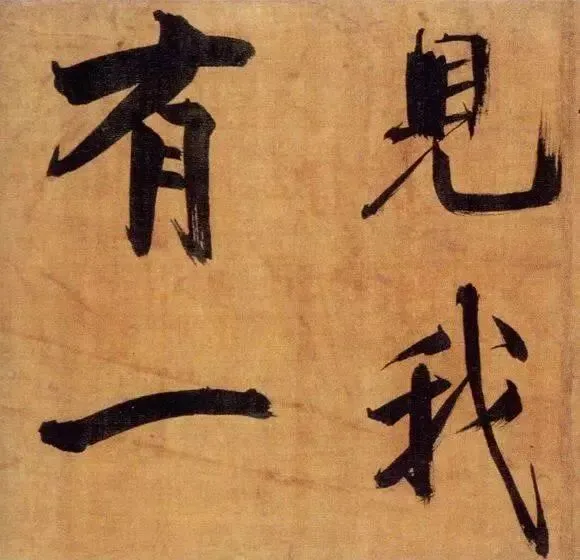 見我
有一